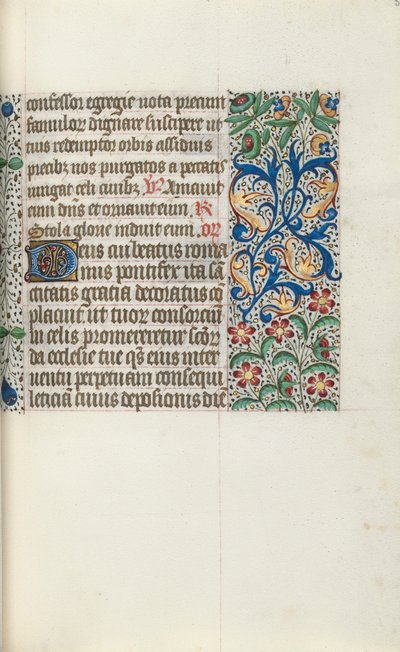 confessor egregie vota precum
famuloꝝ dignare suscipere ut
tuis redemptor orbis assiduis
precibꝫ nos purgatos a peccatis
iungat celi civibꝫ ℣ Amavit
eum dn̄s et ornavit eum. R
Stola glorie induit eum. or
Deus cui beatus roma
nus pontifex ita sā
ctitatis gratia decoratus
placuit ut tuoꝝ consorciū
in celis promeretur scōꝝ
da ecclesie tue q̄s eius inter
ventu perpetuam consequi
leticiā cuius deposionis die